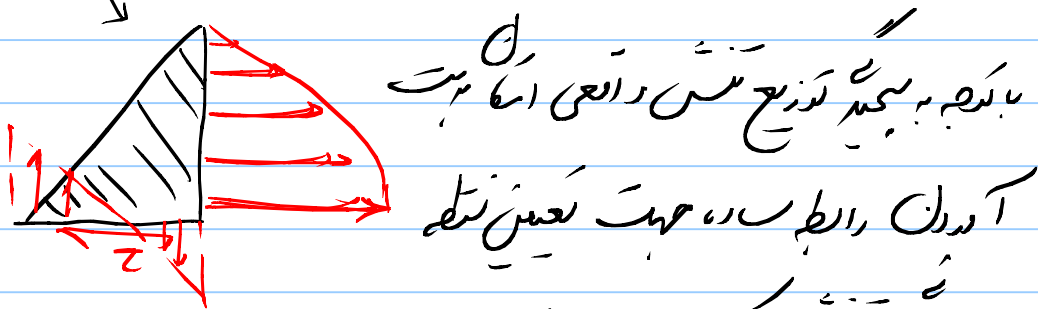 با توجه به پیچیدگی توزیع تنش واقعی امکان بدست
آوردن رابطه ساده جهت تعیین نقطه
τ